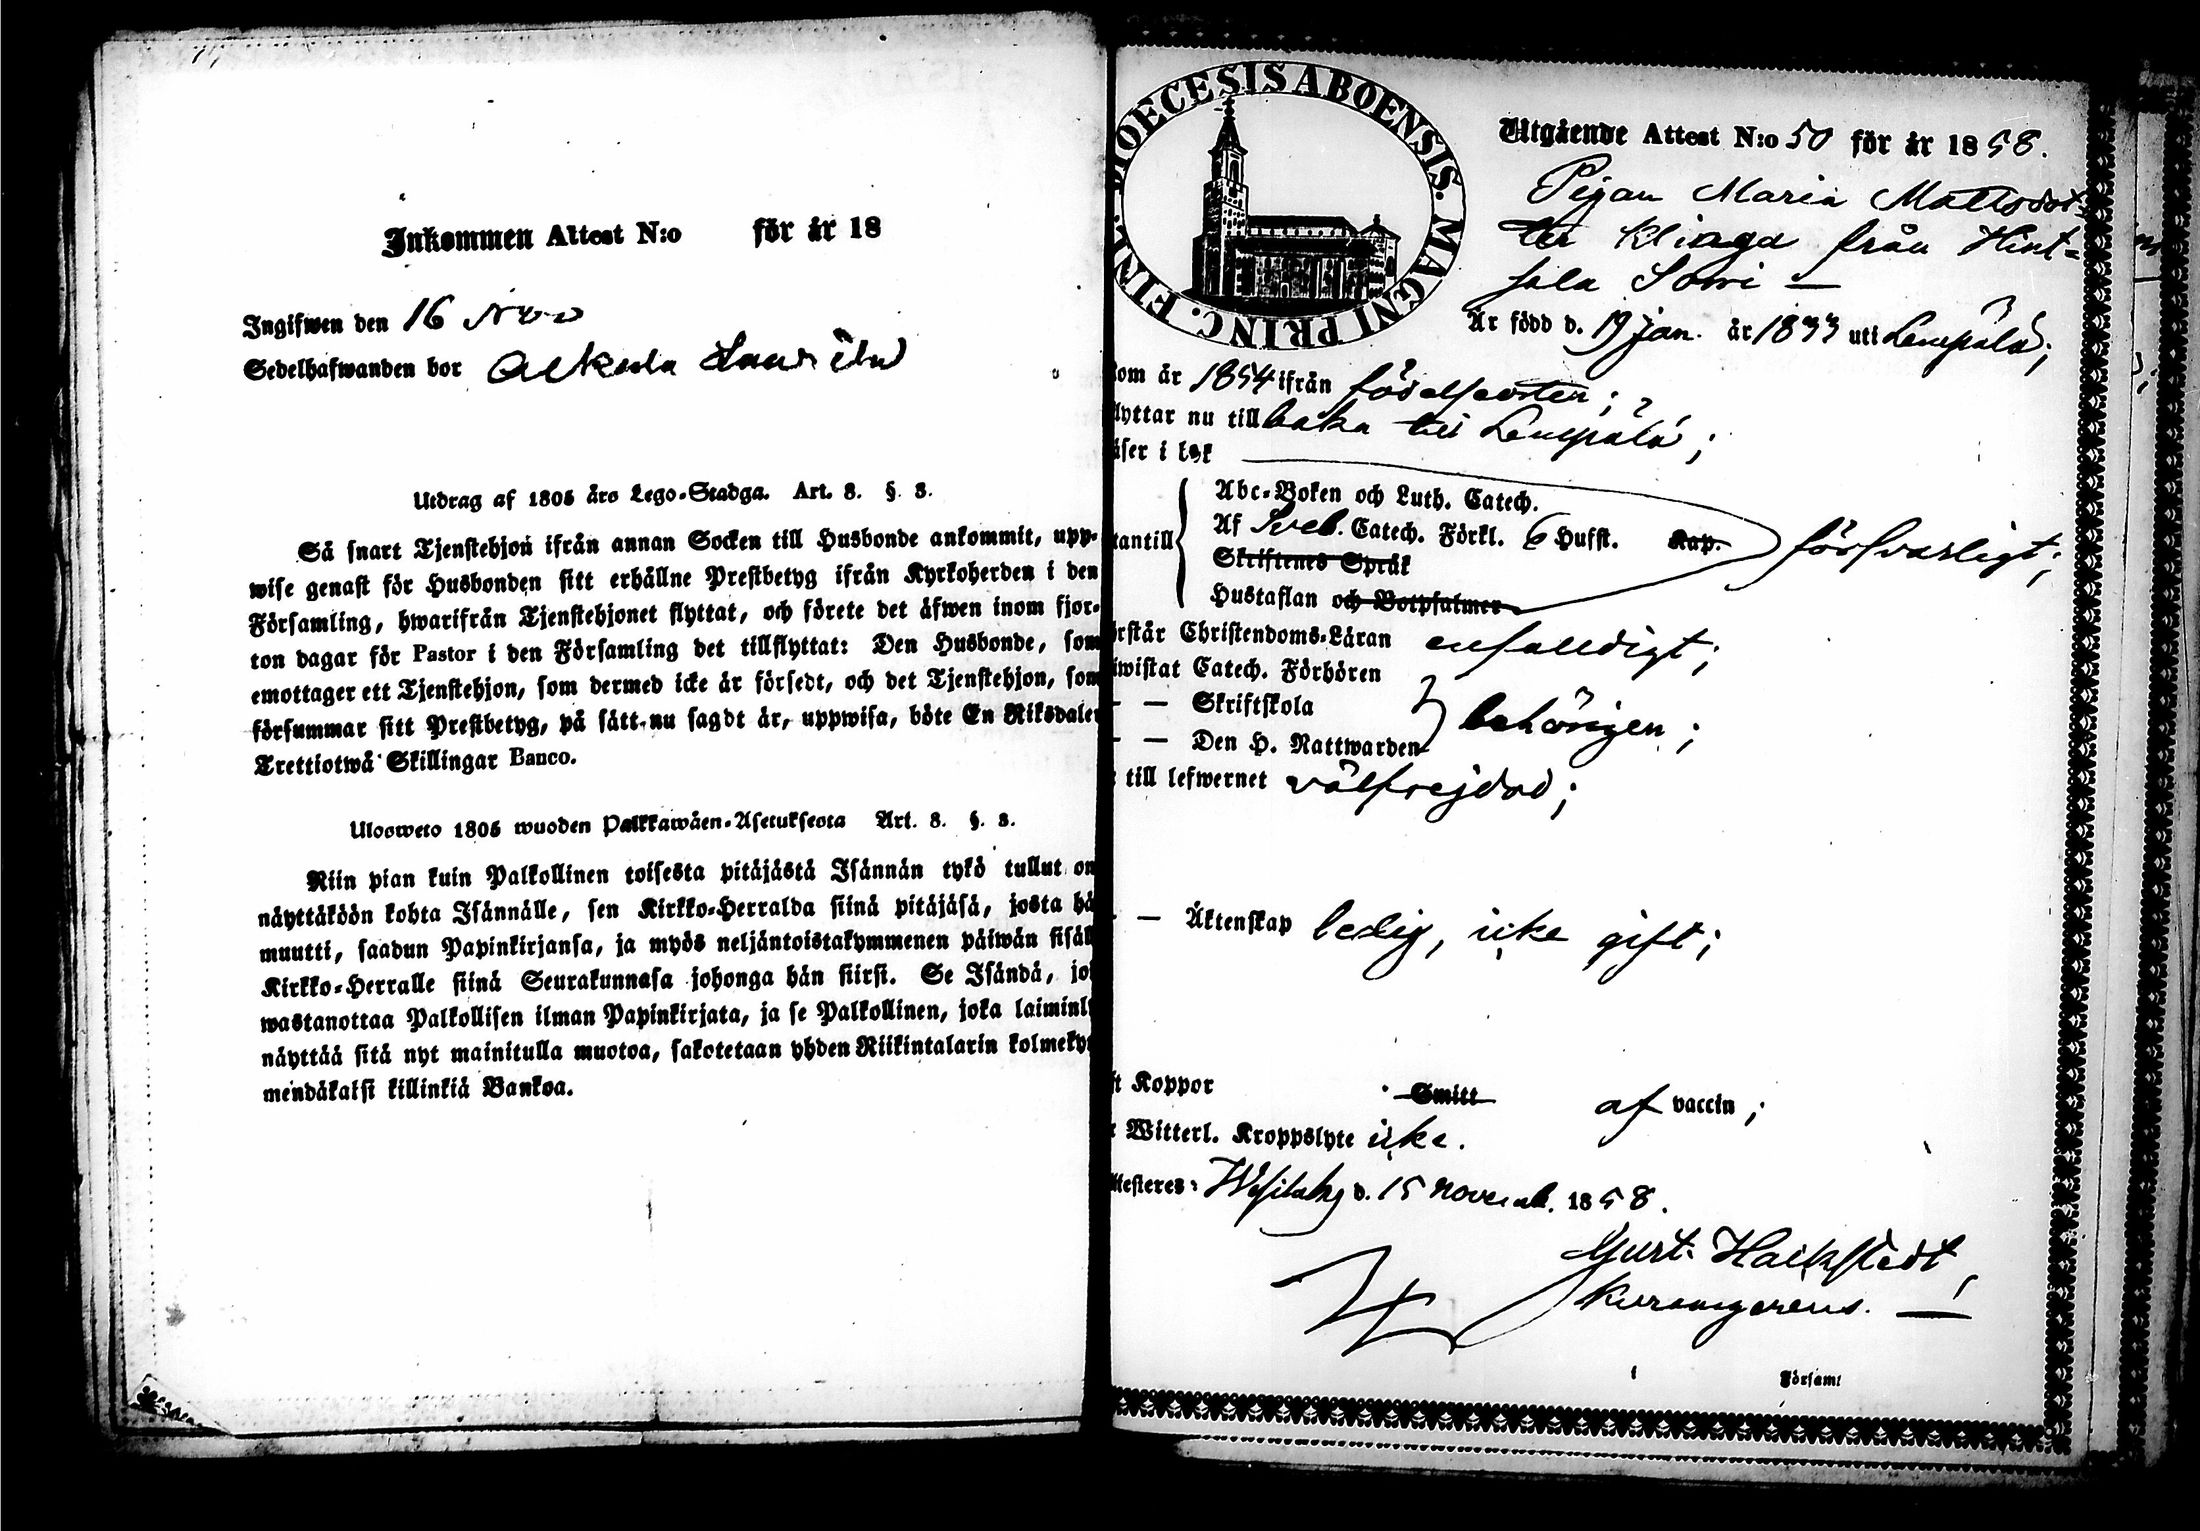 Inkommen Attest N:o för år 18
Ingifwen den 16 Nov
Sedelhafwanden bor Alkula
Utdrag af 1805 års Lego-Stadga. Art. 8. §. 3.
Så snart Tjenstehjon ifrån annan Socken till Husbonde ankommit, upp-
wise genast för Husbonden sitt erhållne Prestbetyg ifrån Kyrkoherden i den
Församling, hwarifrån Tjenstehjonet flyttat, och förete det äfwen inom fjor-
ton dagar för Pastor i den Församling det tillflyttat: Den Husbonde, som
emottager ett Tjenstehjon, som dermed icke är försedt, och det Tjenstehjon, som
försummar sitt Prestbetyg, på sätt nu sagdt är, uppwisa, böte En Riksdaler
Trettiotwå Skillingar Banco.
Ulosweto 1805 wuoden Palkkawäen-Asetuksesta Art. 8. §. 3.
Niin pian kuin Palkollinen toisesta pitäjästä Isännän tykö tullut on
näyttäköön kohta Isännälle, sen Kirkko-Herralda siinä pitäjäsä, josta hä
muutti, saadun Papinkirjansa, ja myös neljäntoistakymmenen päiwän sisäll
Kirkko-Herralle siinä Seurakunnasa johonga hän siirsi. Se Isändä, jo
wastanottaa Palkollisen ilman Papinkirjata, ja se Palkollinen, joka laiminl
näyttää sitä nyt mainitulla muotoa, sakotetaan yhden Riikintalarin kolmeky
mendäkaksi killinkiä Bankoa.
DIOECESIS ABOENSIS. MAGNI PRINC. FINL.
Utgående Attest N:o 50 för år 1858.
Pigan Maria Mattsdot-
ter Kliaga från Hint-
sala Sowi —
Är född d. 19 Jan. år 1833 uti Lempälä;
kom år 1854 ifrån födelseorten;
lyttar nu till baka till Lempälä;
äser i bok
Abc-Boken och Luth. Catech.
Af Sveb. Catech. Förkl. 6 Hufst. Kap. försvarligt;
tantill
Skriftenes Språk
Hustaflan och Botpsalmer
rstår Christendoms-Läran enfaldigt;
iwistat Catech. Förhören
— — Skriftskola behörigen;
— — Den H. Nattwarden
till lefwernet välfrejdad;
— — Äktenskap ledig, icke gift;
ft Koppor Smitt af vaccin;
Witterl. Kroppslyte icke.
ttesteres: Wesilaks d. 15 Novemb. 1858.
Gust. Hackstedt,
Församl